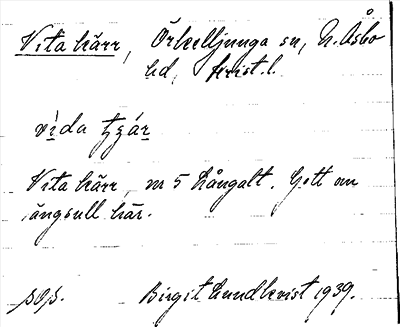 Vita kärr, Örkelljunga sn, N. Åsbo
hd, Krist.l.
vìda tɕær
Vita kärr, nr 5 Långalt. Gott om
ängsull här.
Birgit Lundkvist 1939.